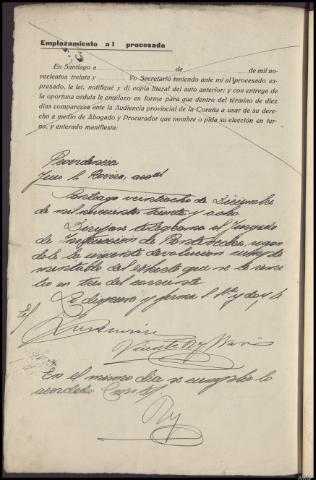 Emplazamiento al procesado
En Santiago a de de mil no-
vecientos treinta y Yo Secretario teniendo ante mí al procesado ex-
presado, le leí, notifiqué y di copia literal del auto anterior; y con entrega de
la oportuna cédula le emplazo en forma para que dentro del término de diez
días comparezca ante la Audiencia provincial de la Coruña a usar de su dere-
cho a medio de Abogado y Procurador que nombre o pida su elección en tur-
no, y enterado manifiesta:
Providencia
Juez
Santiago veintiocho de Diciembre
de mil novecientos treinta y ocho.
Diríjase telegrama al Juzgado
de Instrucción de Pontevedra,
de la urgente devolución cumpli-
mentado del exhorto que se le remi-
tió en tres del corriente.
Lo dispuso y firma
Vicente Rey
En el mismo día se cumple lo
acordado
Rey